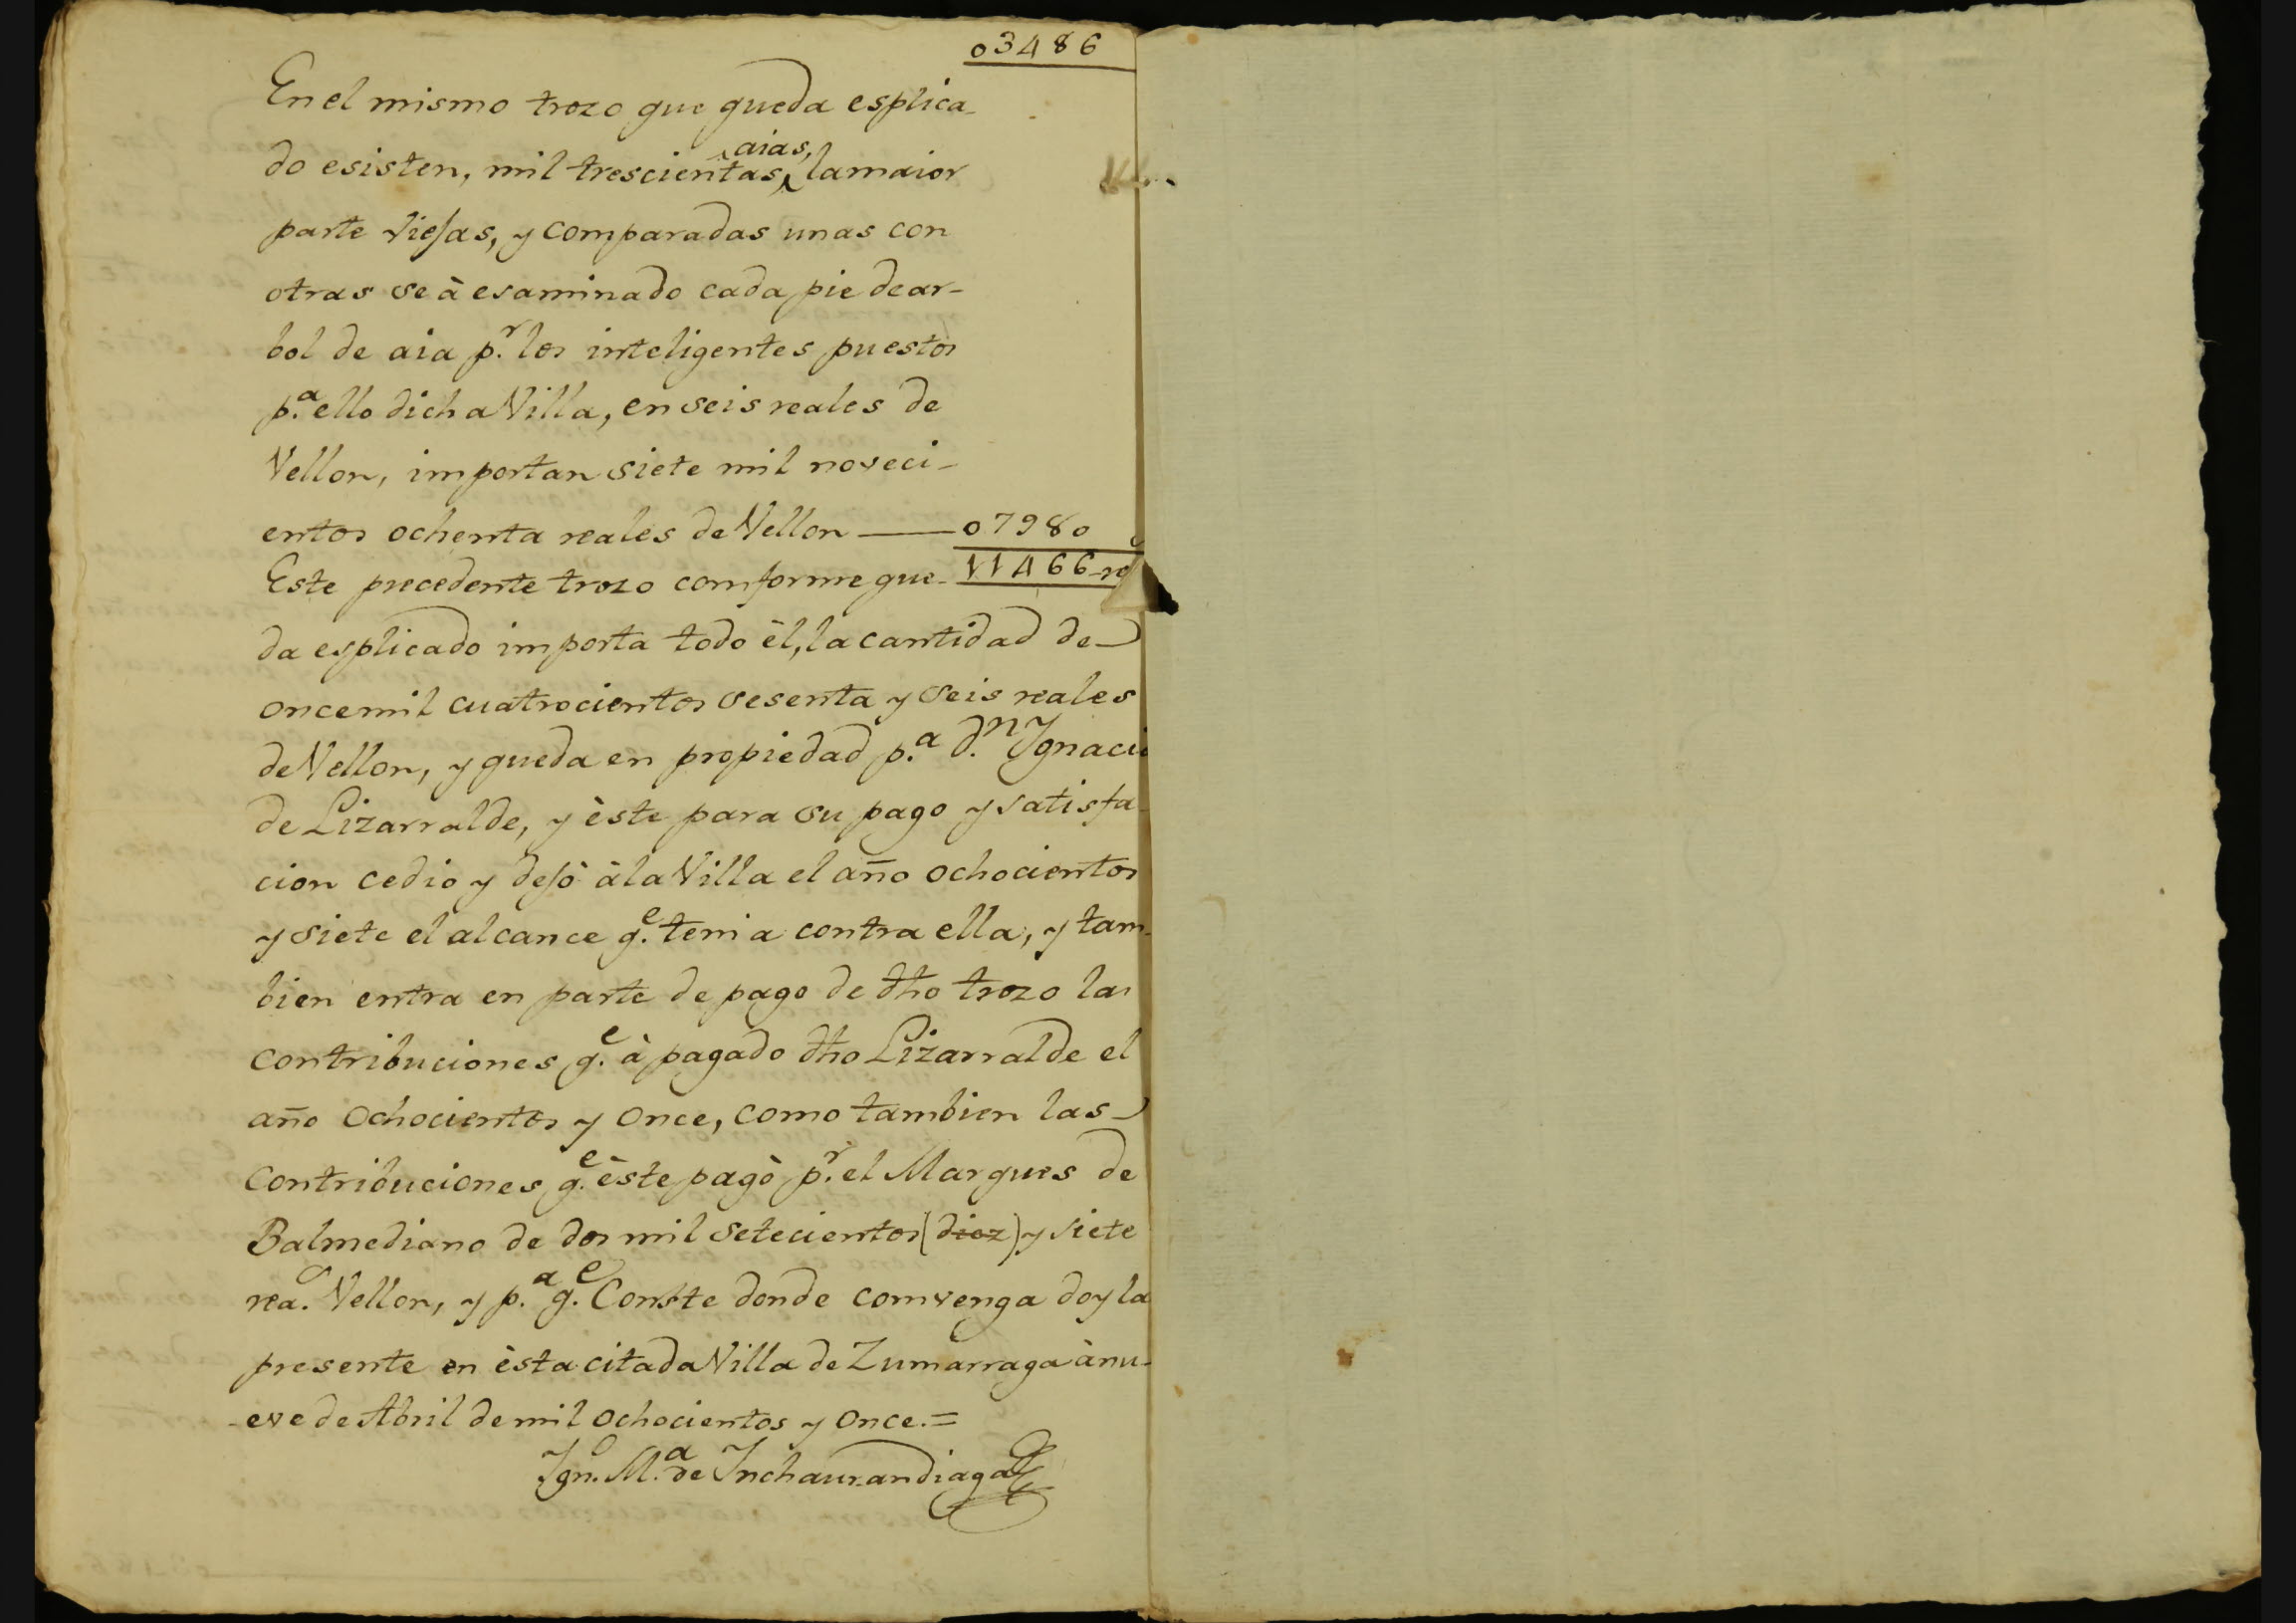 03486
En el mismo trozo que queda esplica-
do esisten, mil trescientas aias, la maior
parte viejas, y comparadas unas con
otras se à esaminado cada pie de ar-
bol de aia p.r los inteligentes puestos
p.a ello dicha Villa, en seis reales de
Vellon, importan siete mil noveci-
entos ochenta reales de Vellon —— 07980
Este precedente trozo comforme que- 11466 r
da esplicado importa todo èl, la cantidad de
once mil cuatrocientos sesenta y seis reales
de Vellon, y queda en propiedad p.a d.n Ygnacio
de Lizarralde, y èste para su pago y satisfa-
cion cedio y dejò à la Villa el año ochocientos
y siete el alcance q.e tenia contra ella, y tam-
bien entra en parte de pago de dho trozo las
contribuciones q.e à pagado dho Lizarralde el
año ochocientos y once, como tambien las
contribuciones q.e èste pagò p.r el Marques de
Balmediano de dos mil setecientos (diez) y siete
rea.s Vellon, y p.a q.e Conste donde comvenga doy la
presente en èsta citada Villa de Zumarraga à nu-
-eve de Abril de mil ochocientos y once.=
Ygn.o M.a de Inchaurandiaga